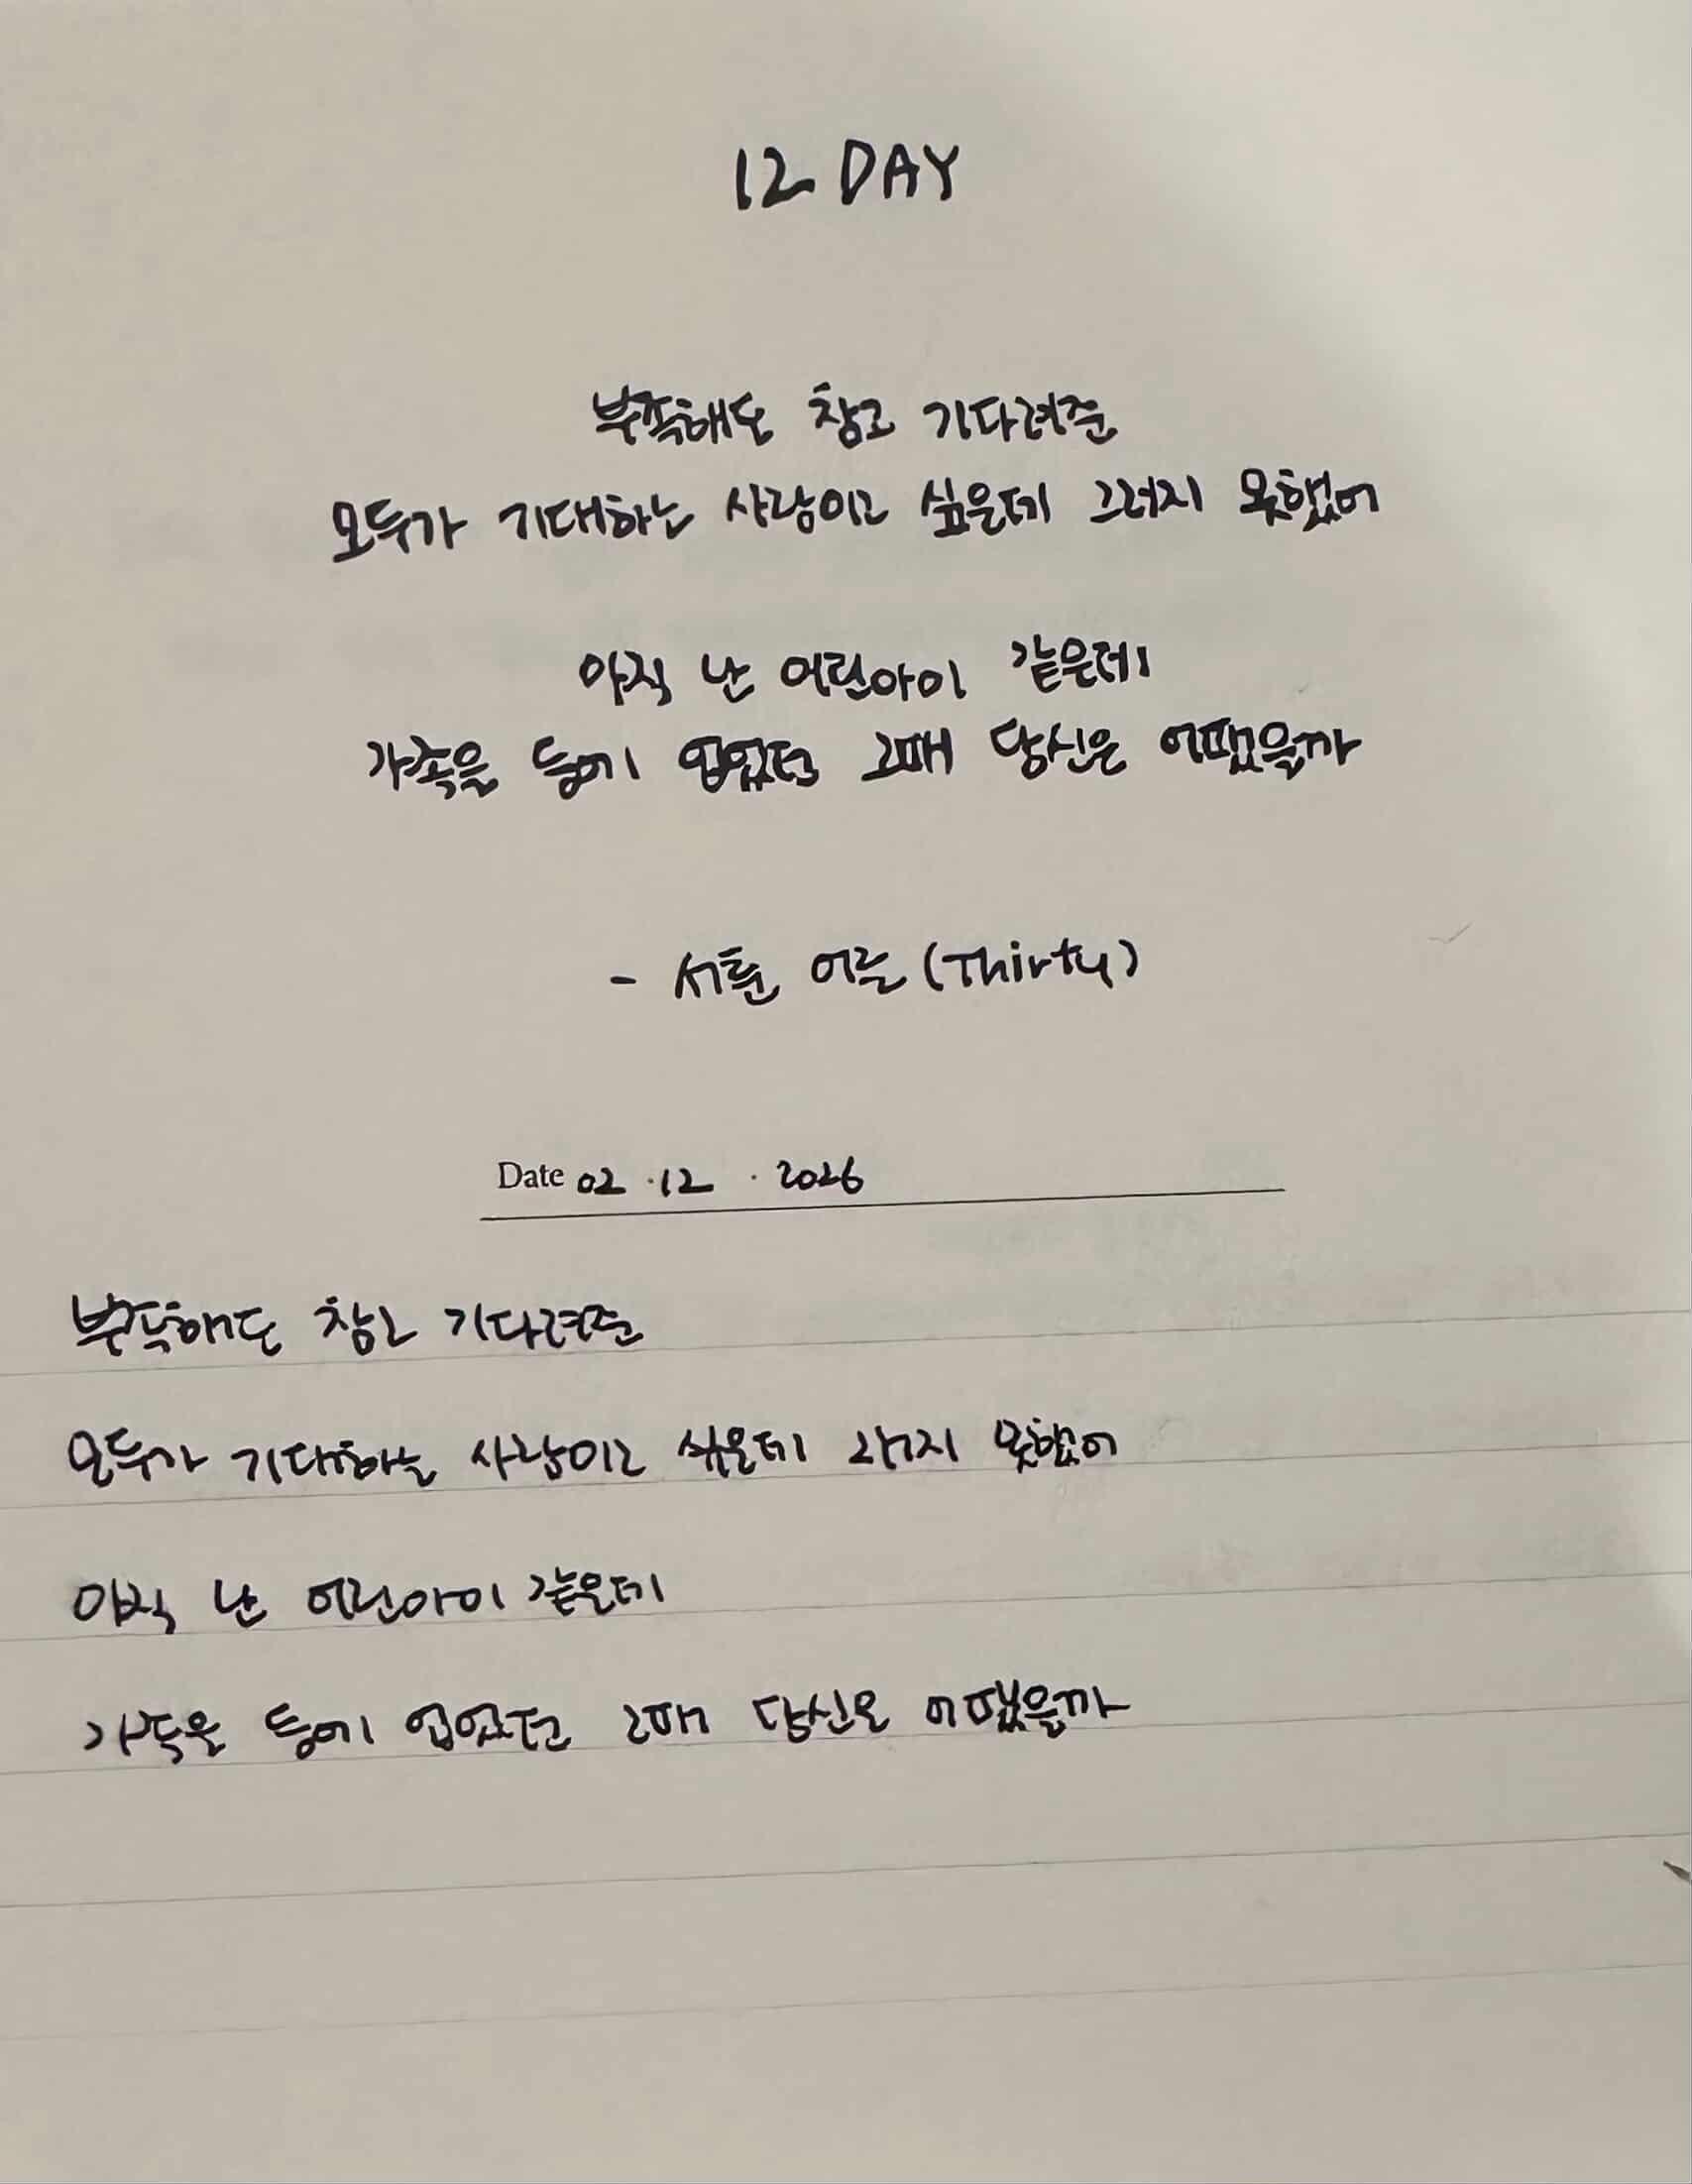 12 DAY
부족해도 참고 기다려준
모두가 기대하는 사랑이고 싶은데 그러지 못했어
아직 난 어린아이 같은데
가족을 등에 업었던 그때 당신은 어땠을까
- 서툰 어른 (Thirty)
Date 02 · 12 · 2026
부족해도 참고 기다려준
모두가 기대하는 사랑이고 싶은데 그러지 못했어
아직 난 어린아이 같은데
가족을 등에 업었던 그때 당신은 어땠을까